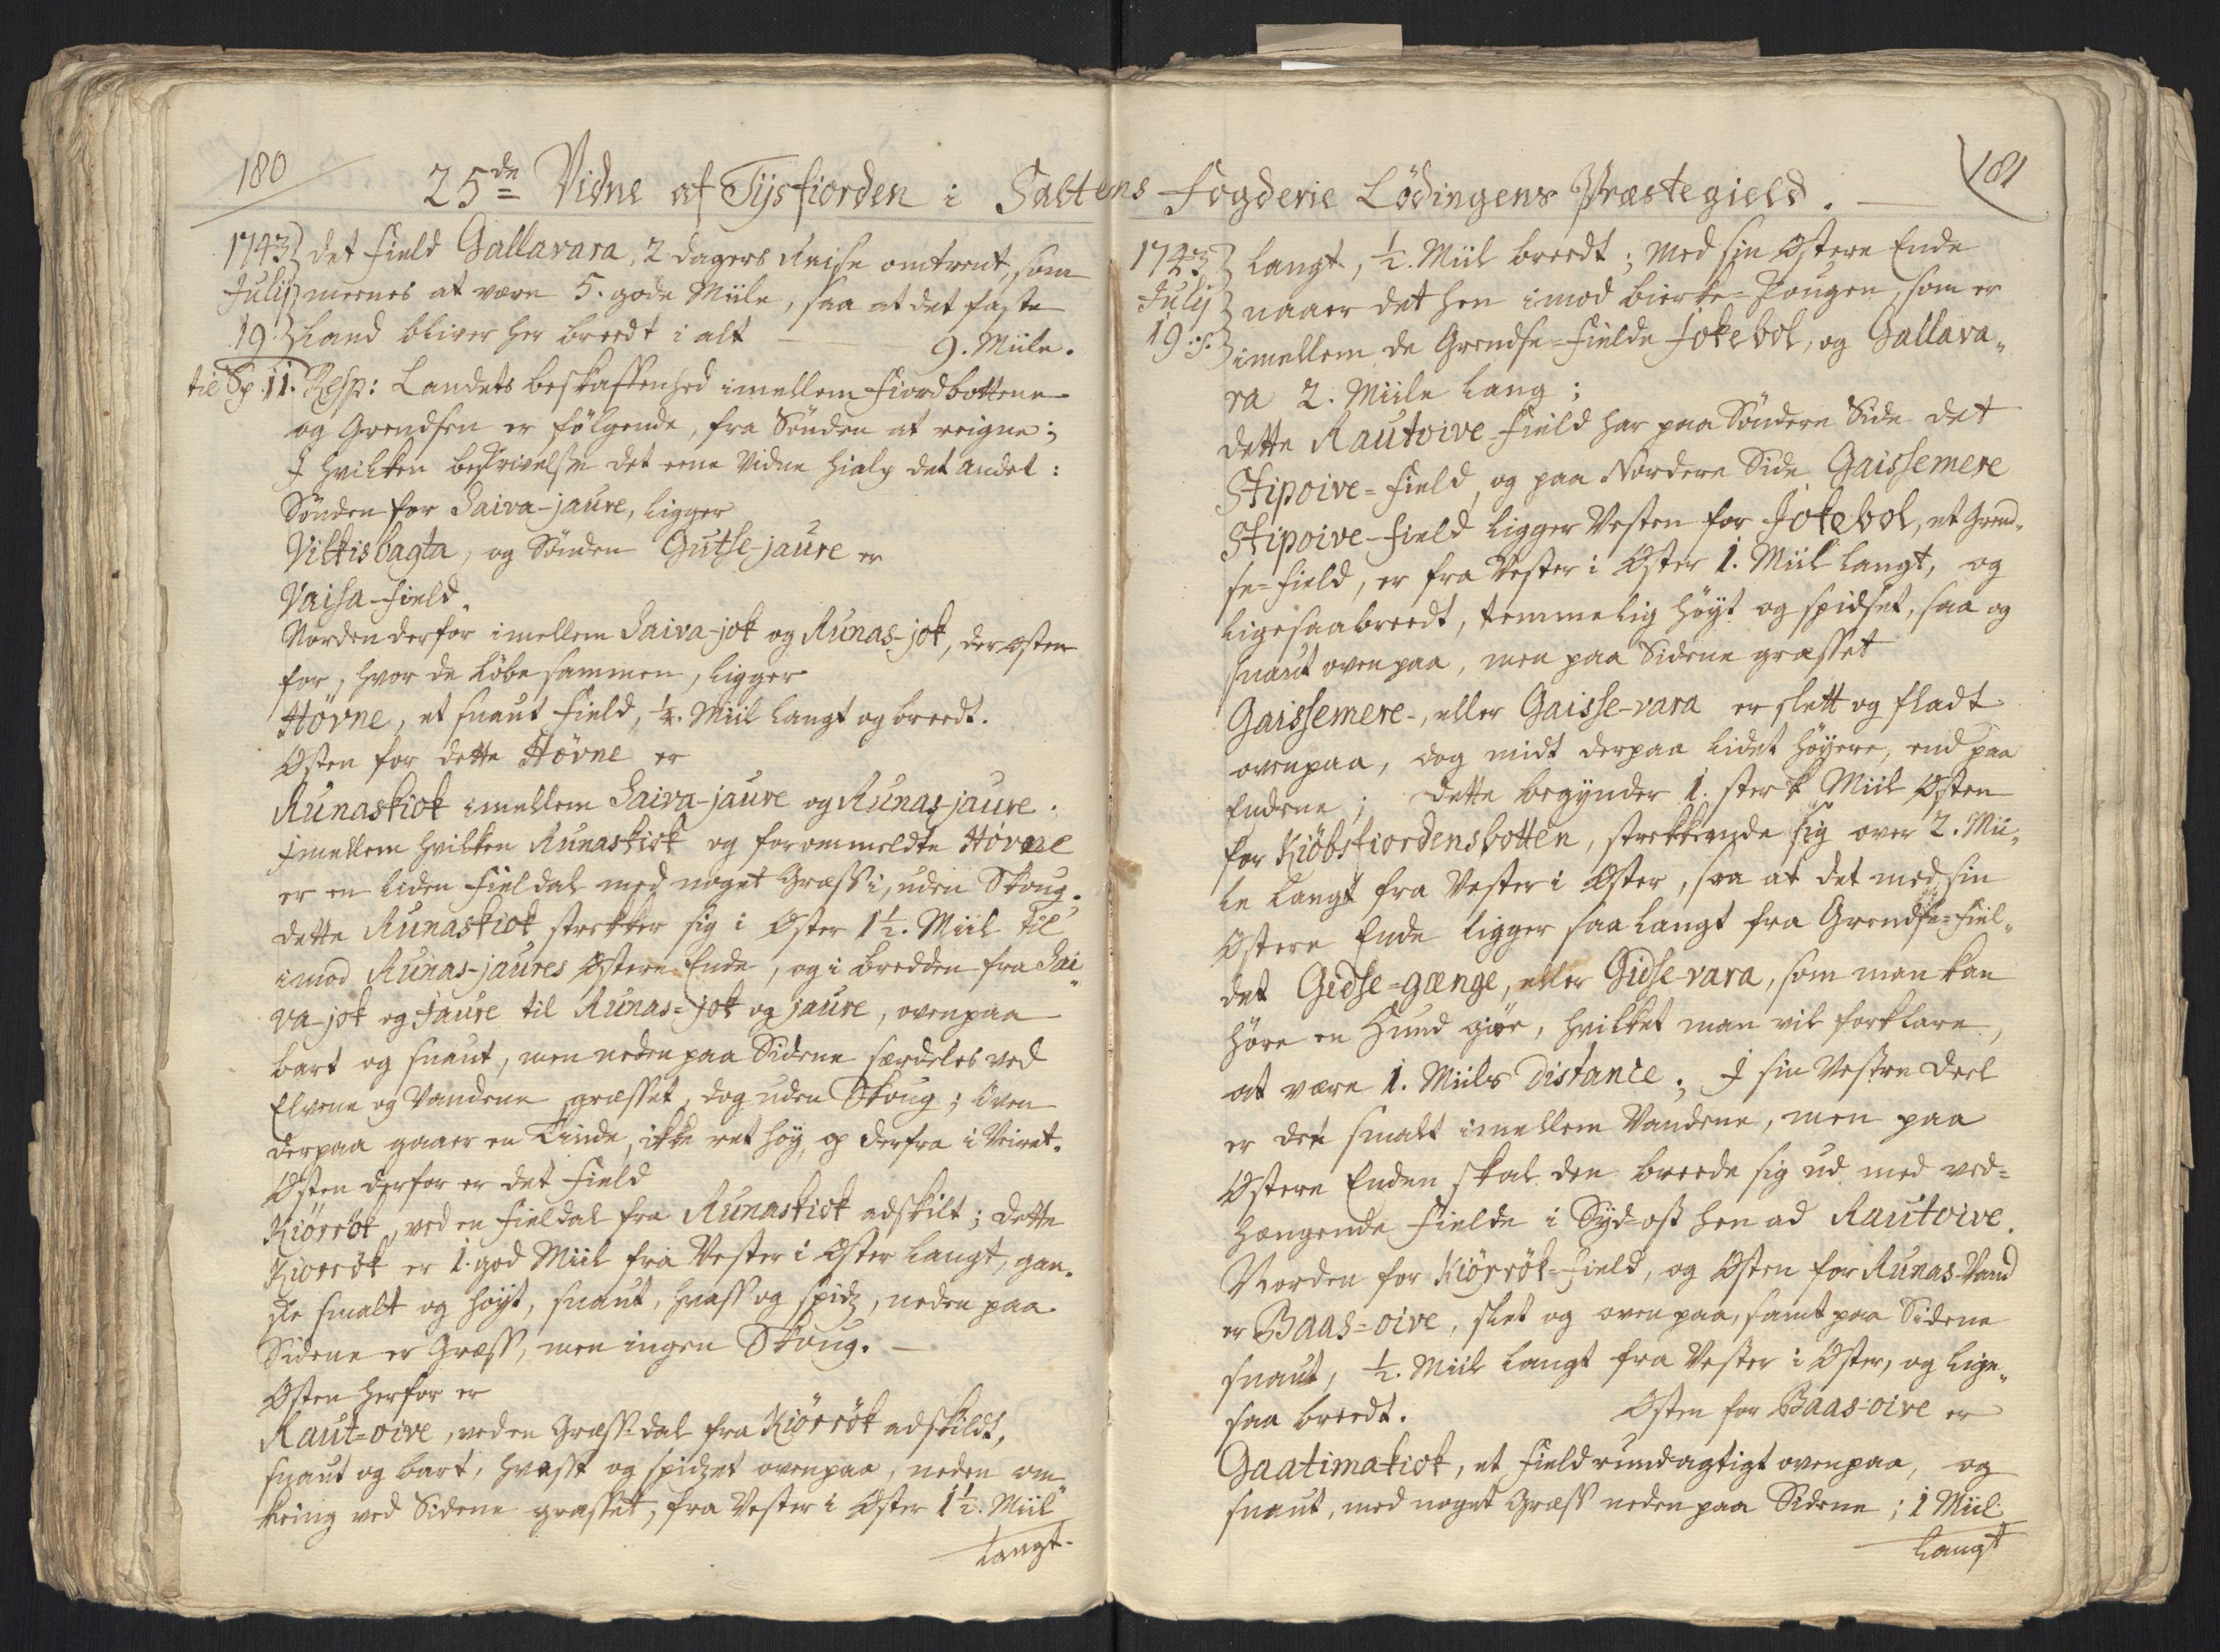 180
25de Vidne af Tysfiorden i Saltens Fogderie Lödingens Præstegield.
181
1743 det Field Gallavara, 2 dagers Reise omtrent, som
Julij meenes at være 5. gode Miile, saa at det faste
19. Land bliver her breedt i alt 9. Miile.
til Sp. 11. Resp: Landets beskaffenhed imellem Fiordbottene
og Grendsen er fölgende, fra Sönden at reigne;
I hvilken beskrivelse det eene Vidne hialp det andet:
Sönden for Saiva-jaure, ligger
Vikkisbagta, og Sönden Gutse-jaure er
Vaisa-Field.
Norden derfor imellem Saiva-jok og Runas-jok, der østen
for, hvor de löbe sammen, ligger
Hövne, et snaut Field, ¼. Miil langt og breedt.
Østen for dette Hövne er
Runaskiok imellem Saiva-jaure og Runas-jaure.
Imellem hvilken Runaskiok og forommeldte Hövne
er en liden Fieldal med noget Græss i, uden Skoug.
dette Runaskiok strekker sig i Øster 1½. Miil til
imod Runas-jaures Østere Ende, og i bredden fra Sai„
va-jok og Jaure til Runas=jok og jaure, ovenpaa
bart og snaut, men neden paa Siderne særdeles ved
Elvene og Vandene græsset, dog uden Skoug; Oven
derpaa gaaer en Tinde, ikke ret höy, op derfra i Veiret.
Østen derfor er det Field
Kiörrök, ved en Fieldal fra Runaskiok adskilt; dette
Kiorrök er 1. god Miil fra Vester i Øster langt, gan„
ske smalt og höyt, snaut, hvass og spidz, neden paa
Siderne er Græss, men ingen Skoug.
Østen herfor er
Raut=oive, ved en Græss-dal fra Kiörrök adskildt,
snaut og bart, hvasst og spidzet ovenpaa, neden om„
kring ved Siderne græsset, fra Vester i Øster 1½. Miil
langt.
1743 langt, ½. Miil breedt; med sin Østere Ende
Julij naaer det hen imod bierke=Skougen, som er
19. imellem de Grendse=Fielde Jokebol, og Gallava„
ra 2. Miile lang;
dette Rautoive-Field har paa Söndere Side det
Stipoive=Field, og paa Nordere Side Gaissemere
Stipoive-Field ligger Vesten for Jokebol, et Grend„
se=Field, er fra Vester i Øster 1. Miil langt, og
ligesaa breedt, temmelig höyt og spidset, saa og
snaut ovenpaa, men paa Siderne græsset
Gaissemere-, eller Gaisse-vara er slett og fladt
ovenpaa, dog midt derpaa lidet höyere, end paa
Enderne; dette begynder 1. sterk Miil Østen
for Kiöbsfiordensbotten, strekkende sig over 2. Mii„
le langt fra Vester i Øster, saa at det med sin
Østere Ende ligger saa langt fra Grendse=Fiel„
det Gidse=gænge, eller Gidse-vara, som man kan
höre en Hund giöe, hvilket man vil forklare,
at være 1. Miils Distance; I sin Vestre Deel
er det smalt imellem Vandene, men paa
Østere Enden skal den breede sig ud med ved=
hængende Fielde i Syd-ost hen ad Rautoive.
Norden for Kiörrök=Field, og Østen for Runas-Vand
er Baas=oive, slet og ovenpaa, samt paa Siderne
snaut, ½. Miil langt fra Vester i Øster, og lige„
saa breedt. Østen for Baas-oive er
Gaatimakiok, et Field rundagtigt ovenpaa, og
snaut, med noget Græss neden paa Siderne; 1 Miil
langt